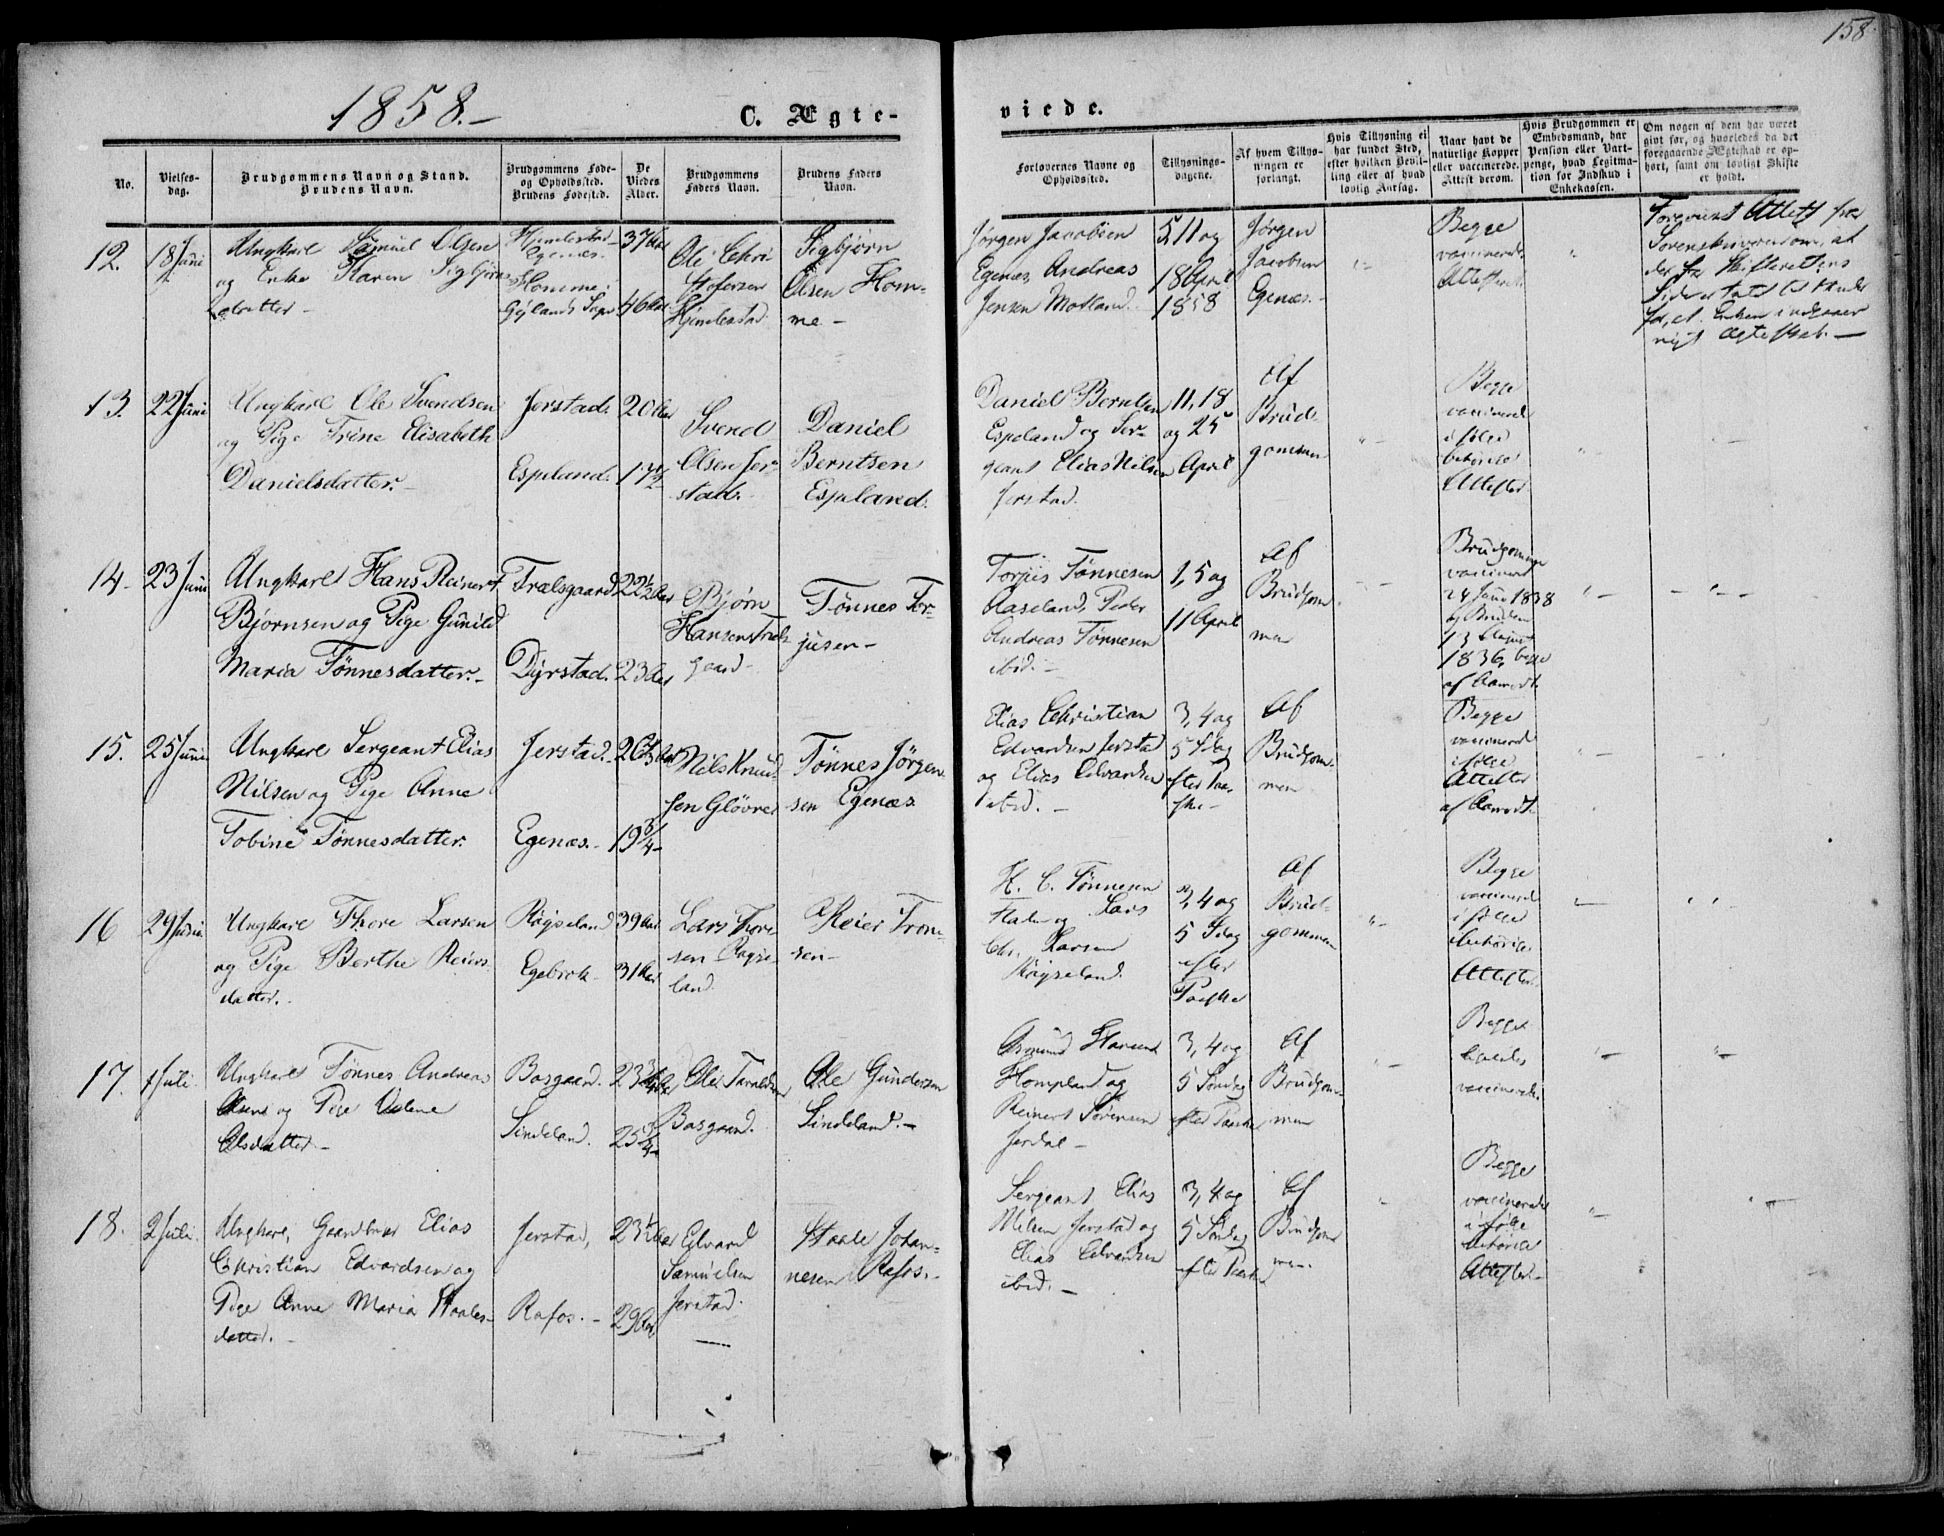 158
1858.-
C. Ægte-
viede.
No.
Vielses-
dag.
Brudgommens Navn og Stand.
Brudens Navn.
Brudgommens Føde-
og Opholdssted.
Brudens Fødested.
De
Viedes
Alder.
Brudgommens
Faders Navn.
Brudens Faders
Navn.
Forlovernes Navne og
Opholdssted.
Tillysnings-
dagene.
Af hvem Tillys-
ningen er
forlangt.
Hvis Tillysning ei
har fundet Sted,
efter hvilken Bevil-
ling eller af hvad
lovlig Aarsag.
Naar havt de
naturlige Kopper
eller vaccinerede.
Attest derom.
Hvis Brudgommen er
Embedsmand, har
Pension eller Vart-
penge, hvad Legitma-
tion for Indskud i
Enkekassen.
Om nogen af dem har været
gift før, og hvorledes da det
foregaaende Ægteskab er op-
hørt, samt om lovligt Skifte
er holdt.
12.
18 Juni
Ungkarl Samuel Olsen
og Enke Karen Sigbjørns
datter -
Egenæs.
Homme i
Gylands Sogn
37 Aar
46 Aar
Ole Chri
stofersen
Sigbjørn
Olsen Hom-
me -
Jørgen Jacobsen
Egenæs, Andreas
Jensen Motland.
5, 11 og
18 April
1858
Jørgen
Jacobsen
Egenæs.
Begge
vaccinerede
Attesterede
Attest fra
Sorenskriveren om, at
der fra Skifterettens
Side er intet til Hinder
for, at Enken indgaaer
nyt Ægteskab. -
13.
22 Juni
Ungkarl Ole Svendsen
og Pige Trine Elisabeth
Danielsdatter. -
Jerstad.
Espeland.
20 Aar
17 1/2
Svend
Olsen Jer-
stad.
Daniel
Berntsen
Espeland.
Daniel Berntsen
Espeland og Ser-
geant Elias Nilsen
Jerstad.
11, 18
og 25
April
Af
Brud-
gommen
Begge
vaccinerede
ifølge
behørige
Attester
14.
23 Juni
Ungkarl Hans Reinert
Bjørnsen og Pige Gunild
Maria Tønnesdatter. -
Trælsgaard
Dyrstad.
22 1/2 Aar
23 Aar
Bjørn
Hansen Træls
gaard -
Tønnes Tor-
jusen -
Torjus Tønnesen
Aaseland, Peder
Andreas Tønnesen
ibid. -
1, 5 og
11 April
Af
Brudgom
men
Brudgommen
vaccineret
24 Juni 1838
og Bruden
13 August
1836, begge
af Aamodt.
15.
25 Juni
Ungkarl Sergeant Elias
Nilsen og Pige Anne
Tobine Tønnesdatter.
Jerstad.
Egenæs. -
19 3/4
Nils Knud-
sen Gløvre
Tønnes Jørgen-
sen Egenæs
Elias Christian
Edvardsen Jerstad
og Elias Edvardsen
ibid. -
3, 4 og
5 Sdag
efter Paa-
ske -
Af
Brudgom-
men
Begge
vaccinerede
ifølge
Attester
af Aamodt.
16
29 Juni
Ungkarl Thore Larsen
og Pige Berthe Reiers-
datter. -
Røgseland
Egebrok -
39 Aar
31 Aar
Lars Thore
sen Røgse-
land.
Reier Tron-
sen -
H. C. Tønnesen
og Lars
Chr. Larsen
Røgseland.
3, 4 og
5 Sdag
efter
Paaske
Af
Brud-
gommen
Begge
vaccinerede
ifølge
behørige
Attester.
17.
1 Juli.
Ungkarl Tønnes Andreas
Olsen og Pige Velene
Olsdatter. -
Bosgaard.
Sindeland.
23 3/4 Aar
25 3/4
Ole Taraldsen
Bosgaard.
Ole Gundersen
Sindeland. -
Hompland og
Reinert Sørensen
Jerdal -
3, 4 og
5 Søndag
efter Paaske
Af
Brudgom-
men
Begge
vaccinerede.
18.
2 Juli.
Ungkarl, Gaardbruger Elias
Christian Edvardsen og
Pige Anne Maria Staales-
datter. -
Jerstad,
Rafos. -
23 1/2 Aar
29 Aar
Edvard
Samuelsen
Jerstad.
Staale Johan-
nesen Rafos. -
Sergeant Elias
Nilsen Jerstad og
Elias Edvardsen
ibid. -
3, 4 og
5 Søndag
efter Paaske
Af
Brudgom
men.
Begge
vaccinerede
ifølge
behørige
Attester. -